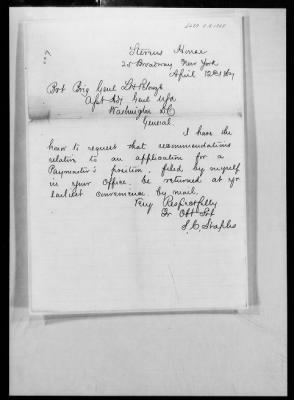 Stevens House
25 Broadway New York
April 12th 1869
Bvt Brig Genl L H Pelouze
Asst Adj Genl USA
Washington DC
General
I have the
honor to request that recommendations
relative to an application for a
Paymaster's position, filed by myself
in your office, be returned at yr
earliest convenience by mail.
Very Respectfully
Yr Obt Svt
S. C. Staples